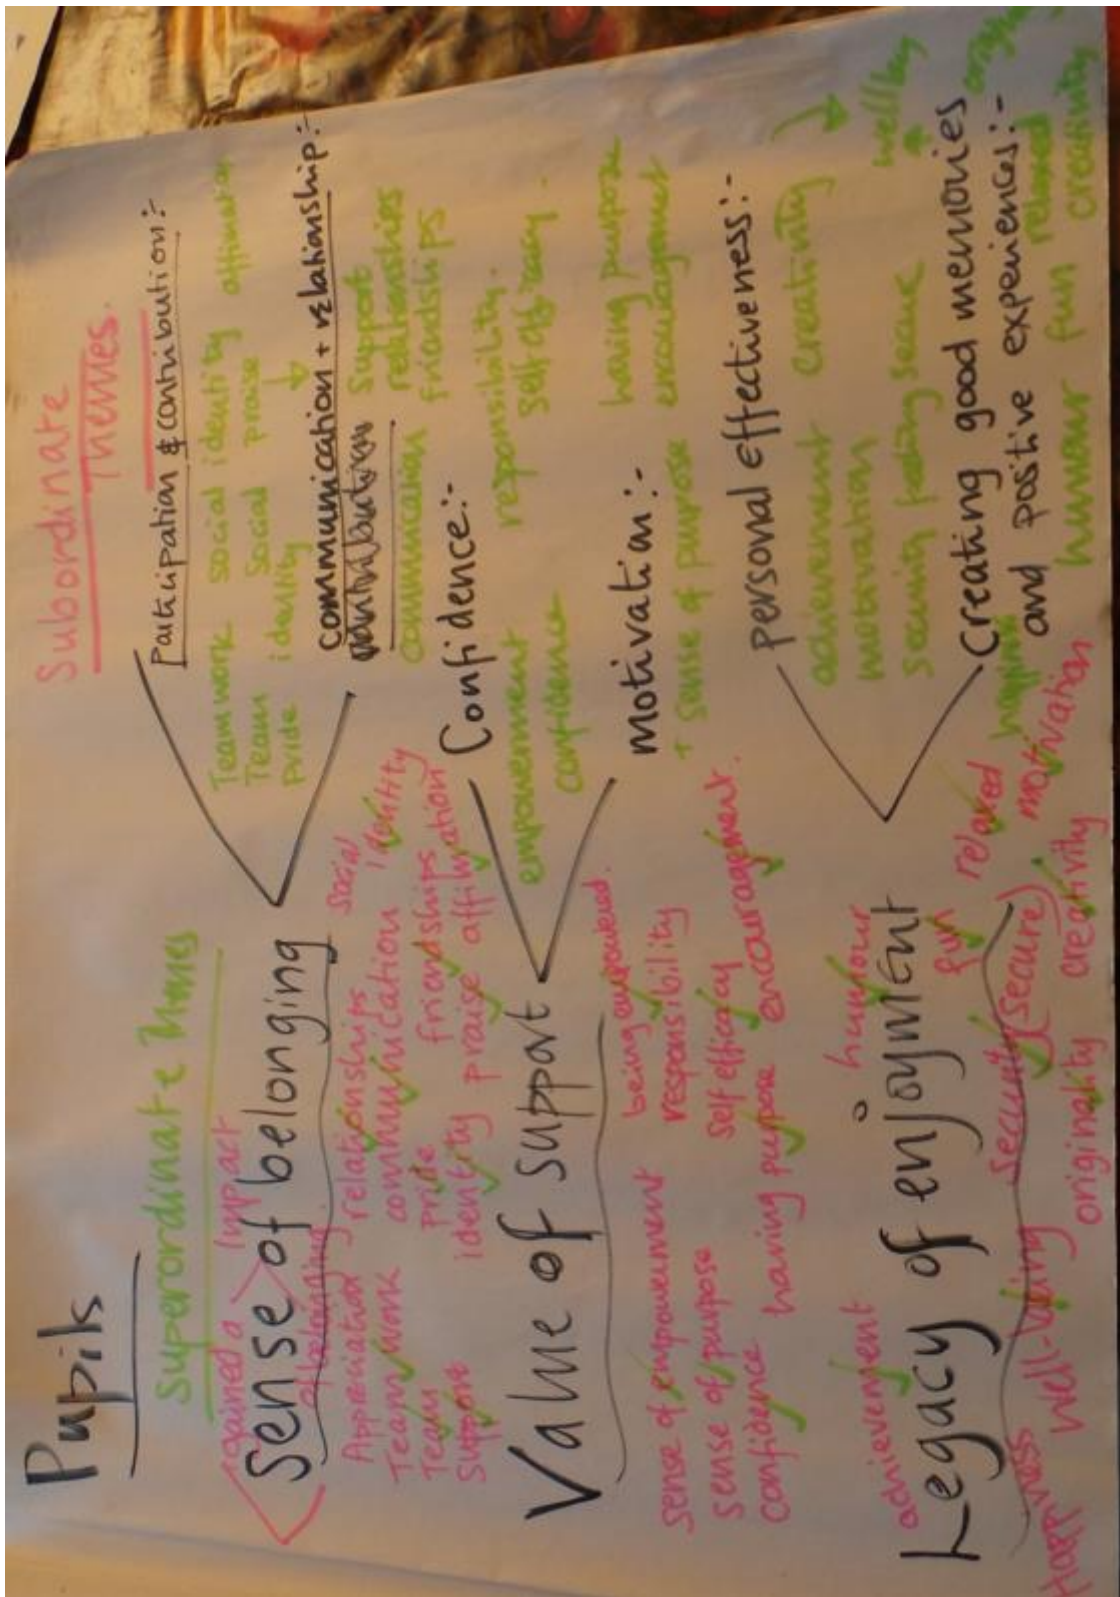 Pupils
Superordinate Themes
Subordinate
Themes.
regained a Impact
of belonging
Sense of belonging
Appreciation relationships social
Team work communication identity
Team pride friendships
Support identity praise affirmation
Participation & contribution:-
Teamwork social identity affirmation
Team Social praise
pride identity
communication + relationship:-
communication support
relationships
friendships
Value of support
sense of empowerment being empowered.
sense of purpose responsibility
confidence self efficacy
having purpose encouragement.
Confidence:-
empowerment responsibility.
confidence self efficacy.
motivation:-
+ sense of purpose having purpose
encouragement
Legacy of enjoyment
achievement humour
fun relaxed
Happiness well-being security (secure) motivation
originality creativity
personal effectiveness:-
achievement creativity
motivation
feeling secure wellbeing
Creating good memories
and positive experiences:-
relaxed
humour fun creativity